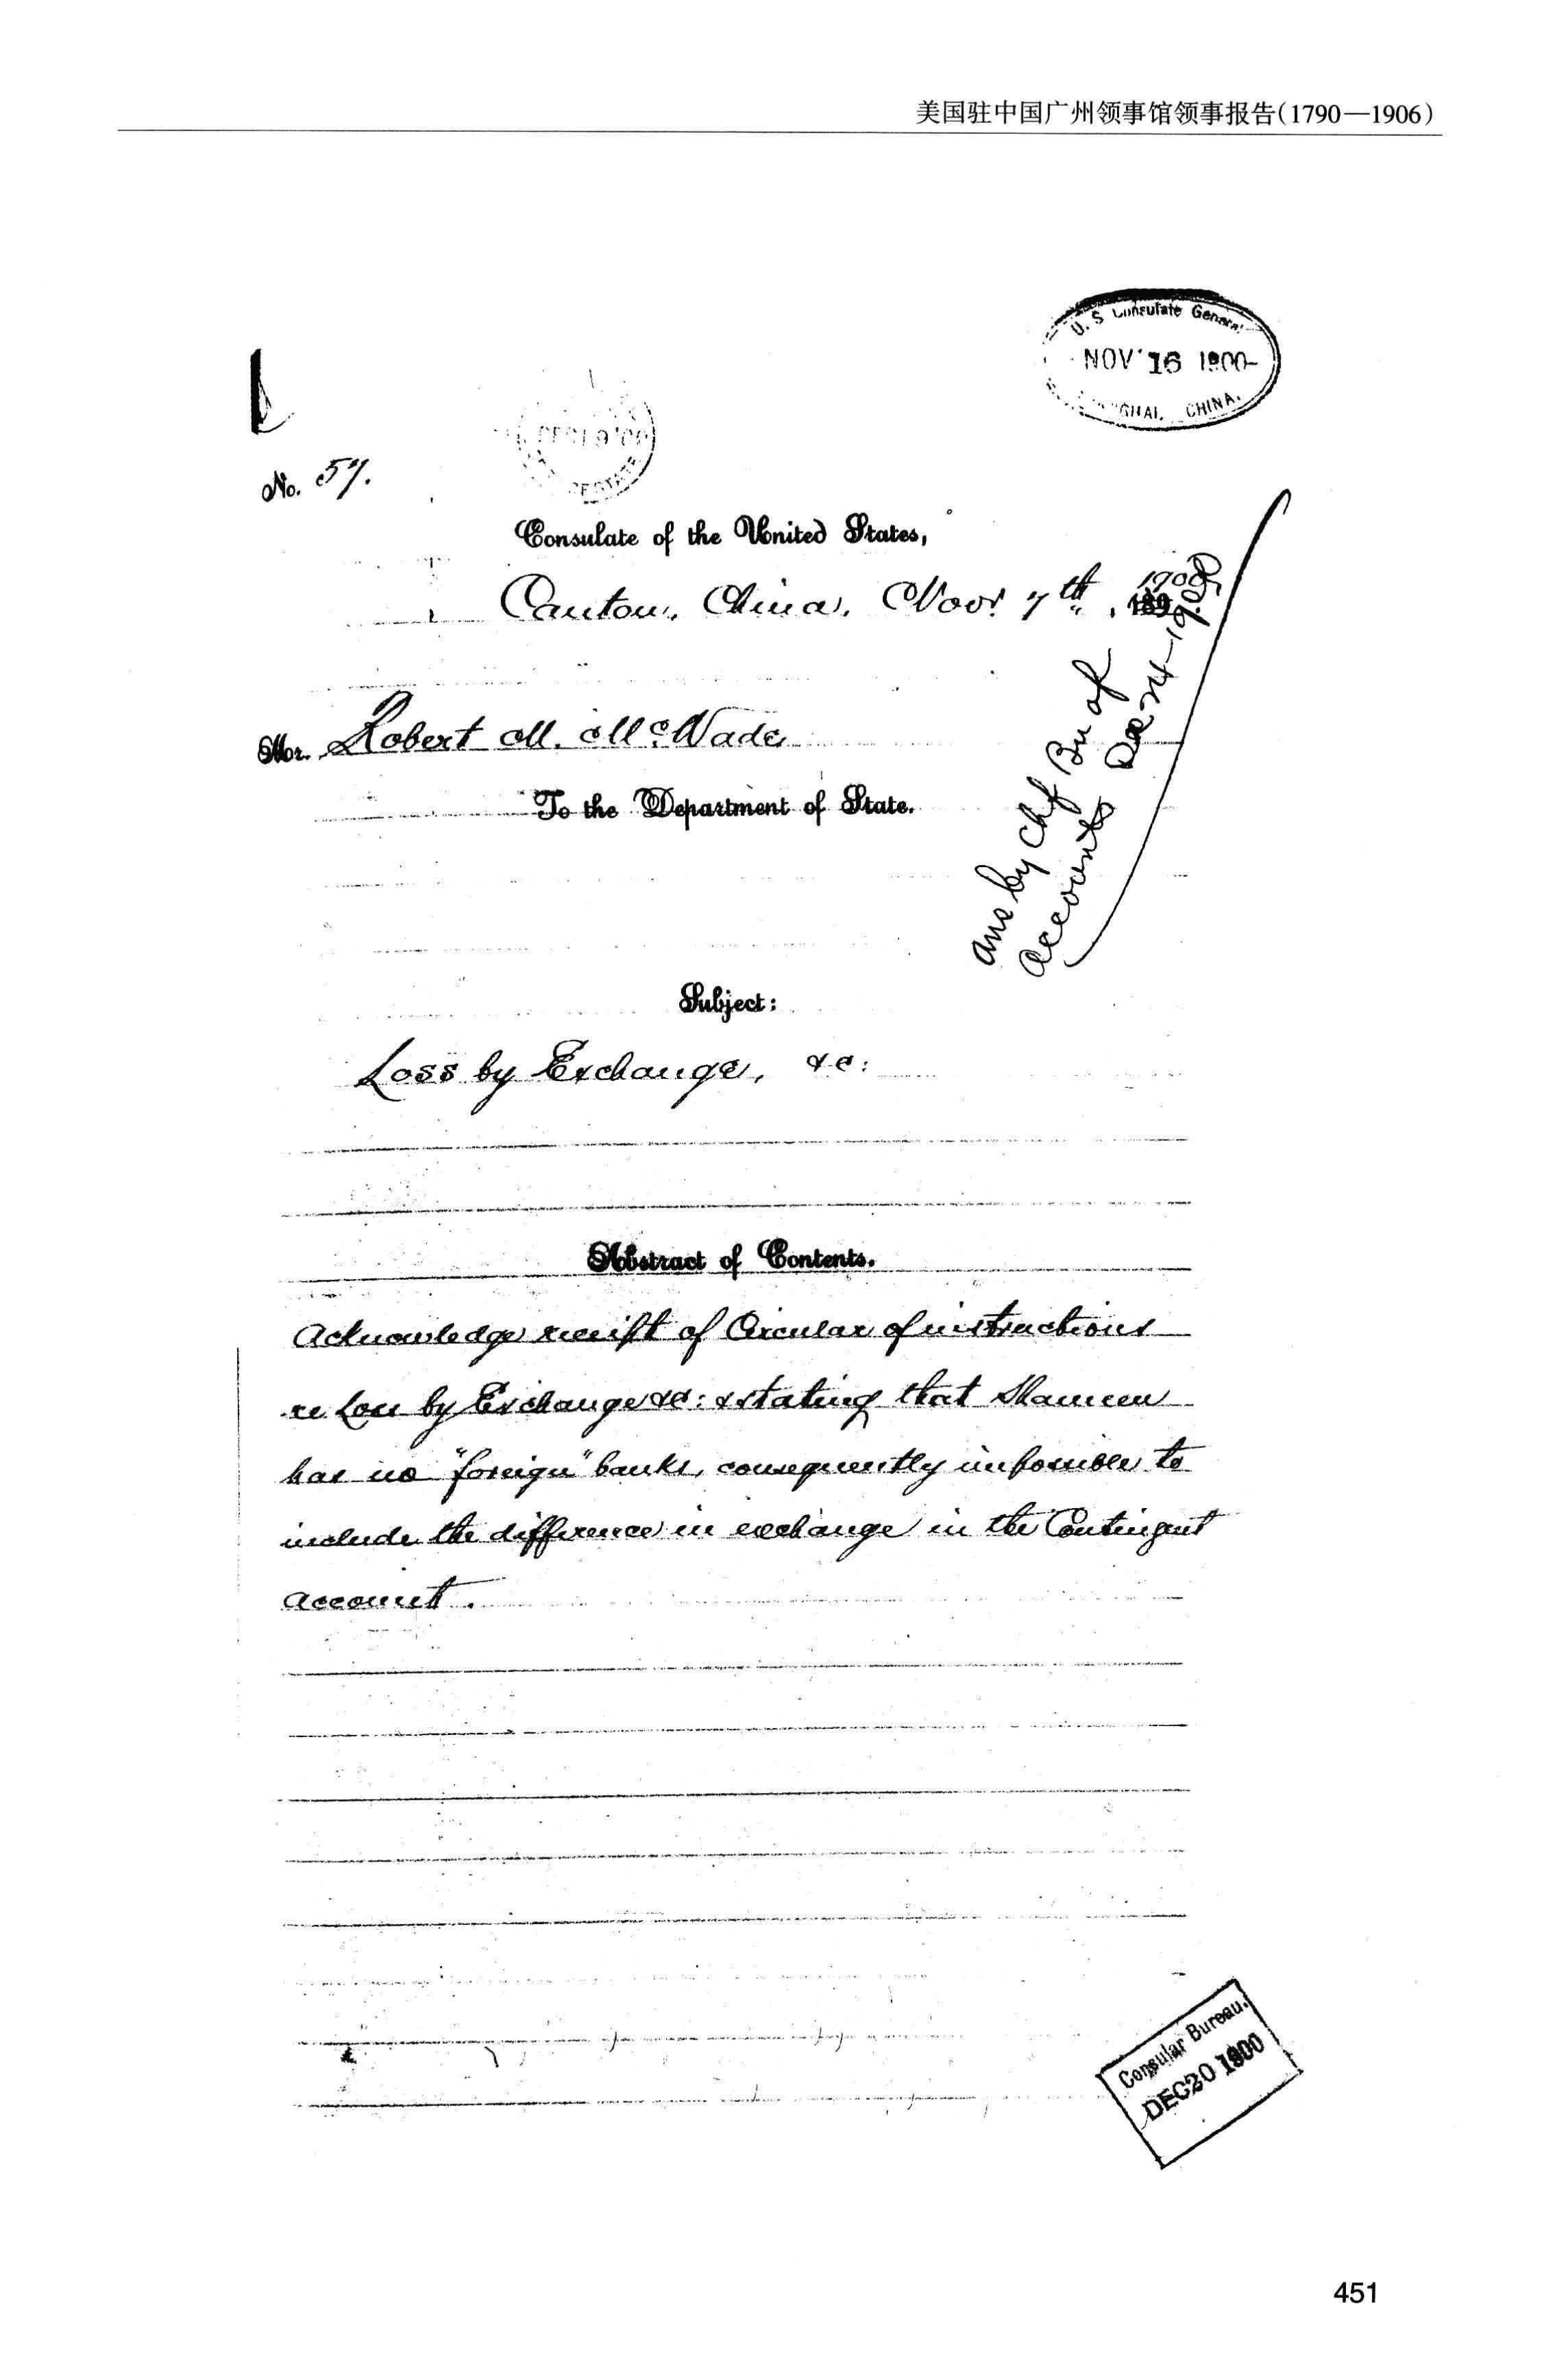 美国驻中国广州领事馆领事报告(1790—1906)
U. S Consulate General
NOV 16 1900
CHINA.
No. 57.
Consulate of the United States,
Canton, China, Novr 7th, 1900
Mr. Robert M. McWade
To the Department of State.
ans by Chf Bu of
accounts Dec 24–1900
Subject:
Loss by Exchange, &c:
Abstract of Contents.
Acknowledge receipt of Circular of instructions
re Loss by Exchange &c: & stating that Shameen
has no "foreign" banks, consequently impossible to
include the difference in exchange in the Contingent
account.
Consular Bureau.
DEC 20 1900
451